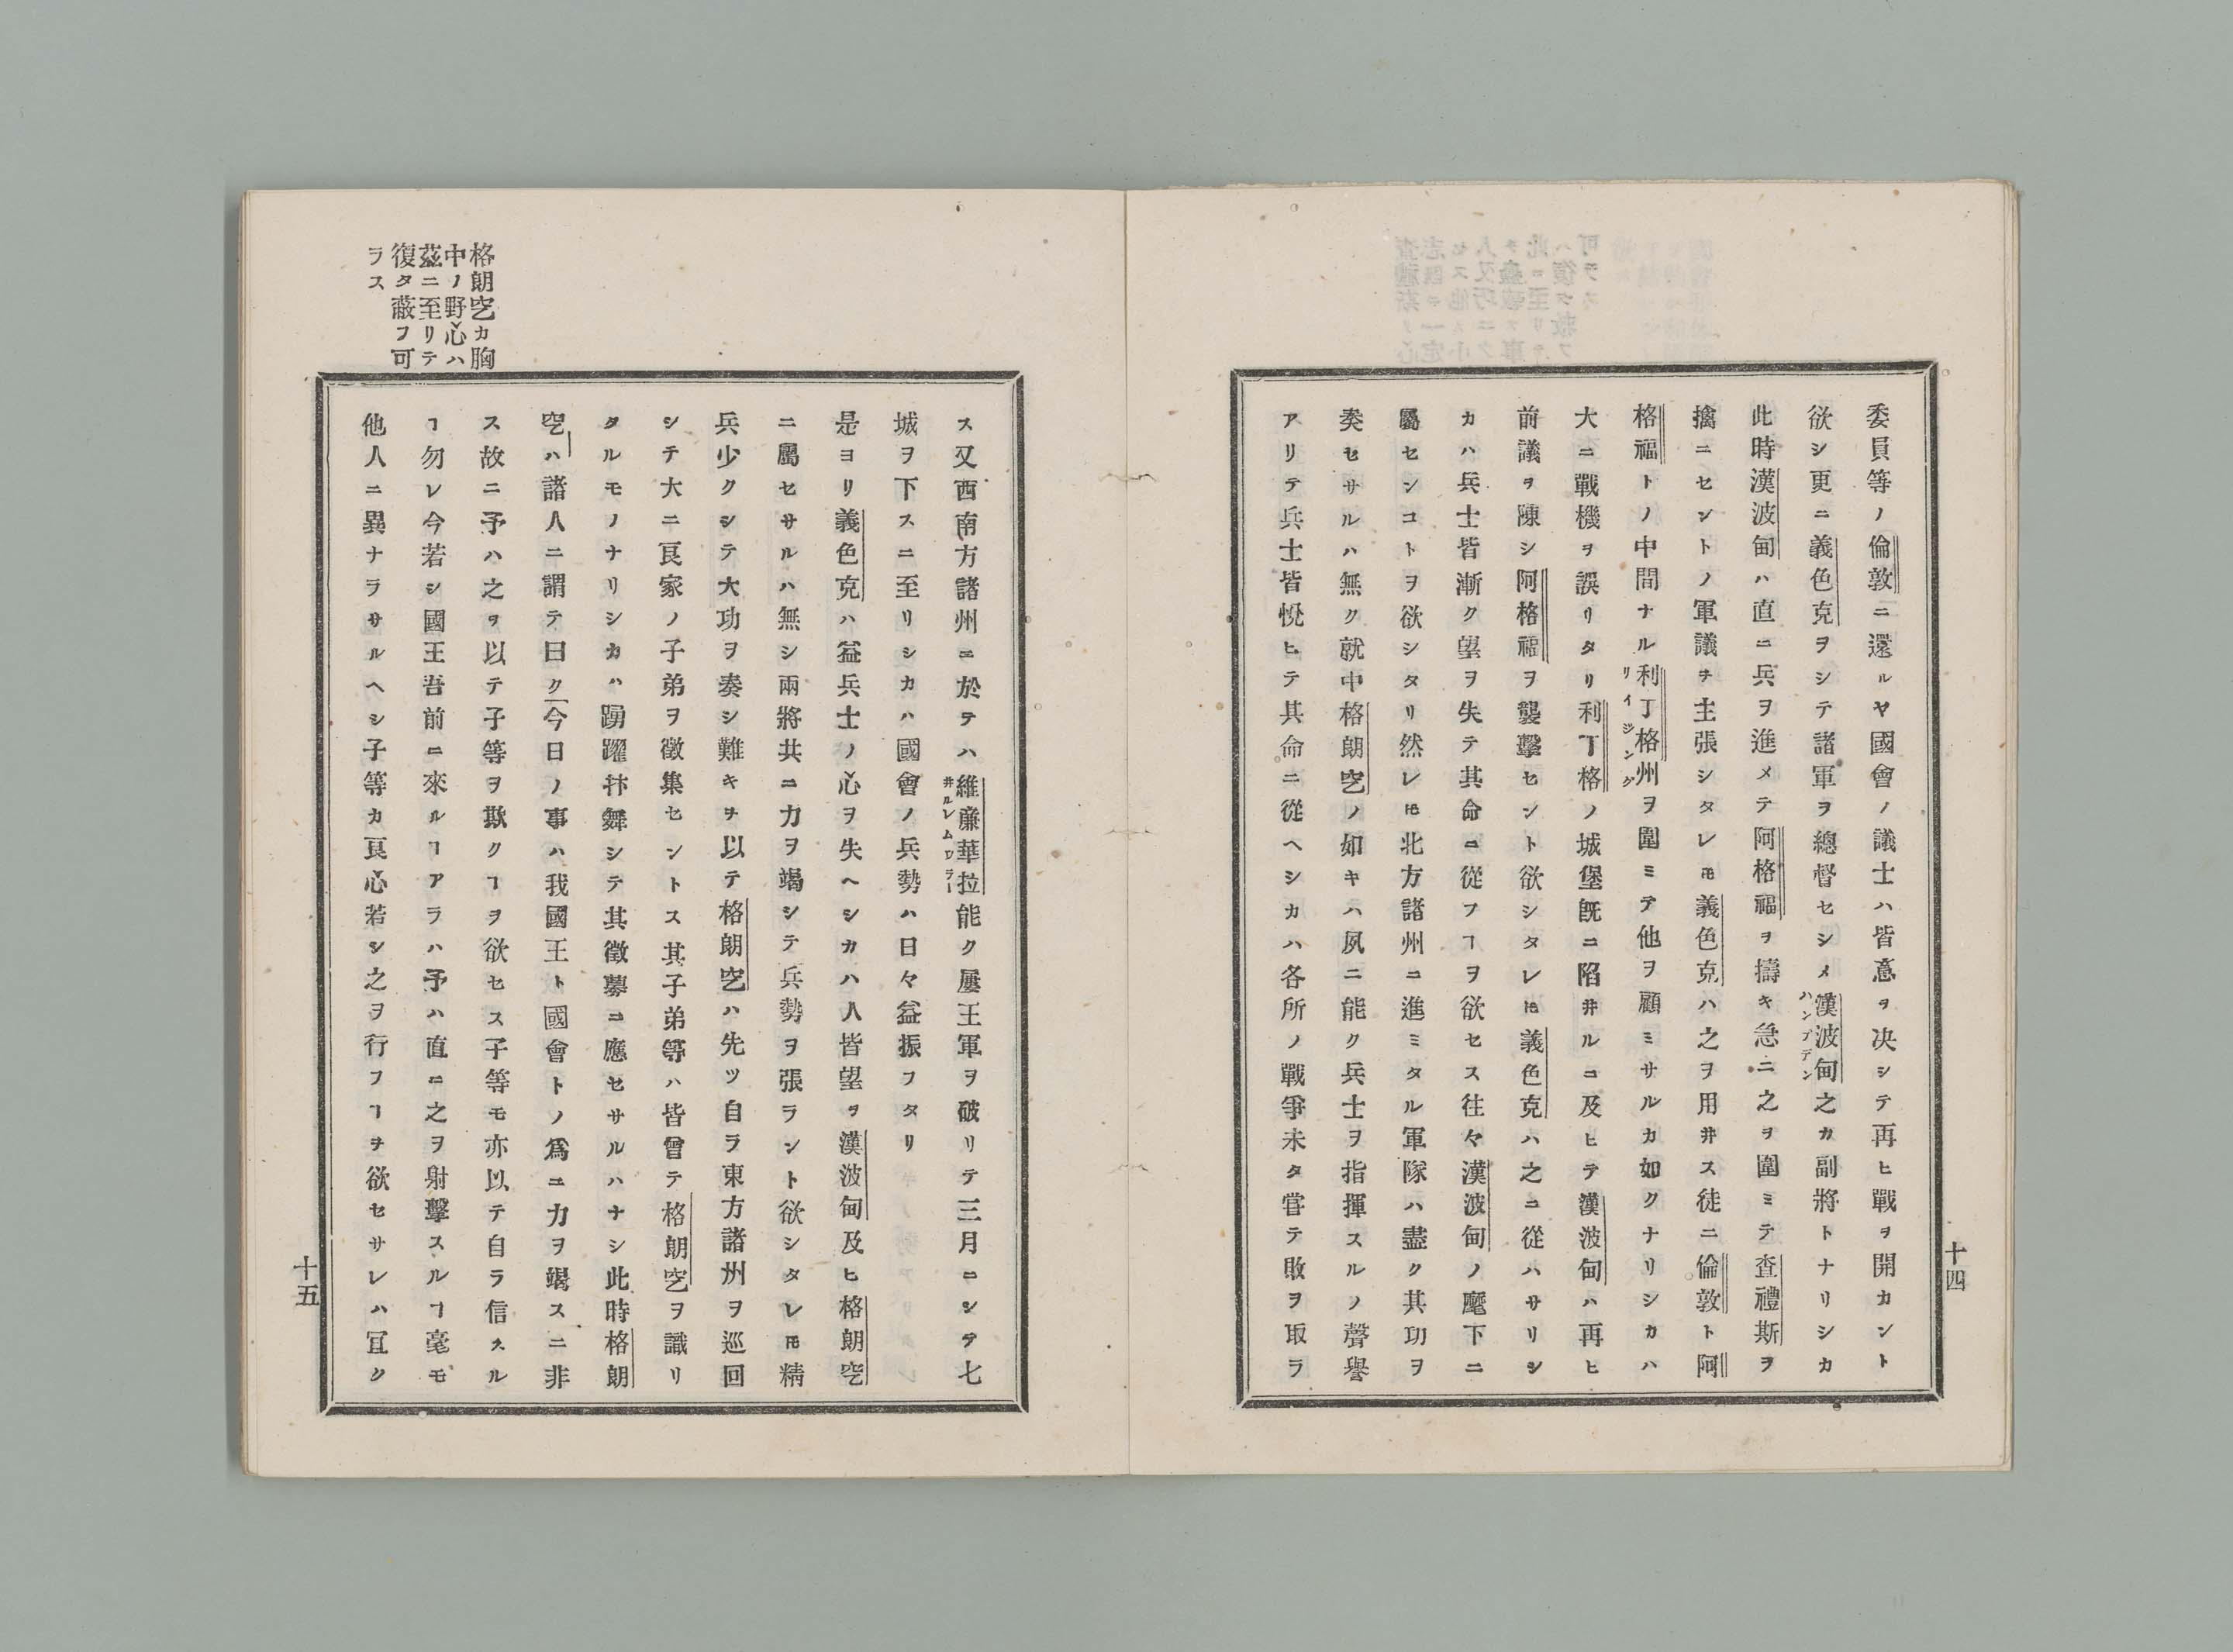 委員等ノ倫敦ニ還ルヤ國會ノ議士ハ皆意ヲ决シテ再ヒ戰ヲ開カント
欲シ更ニ義色克ヲシテ諸軍ヲ總督セシメ漢波甸之カ副將トナリシカ
ハンプデン
此時漢波甸ハ直ニ兵ヲ進メテ阿格福ヲ擣キ急ニ之ヲ圍ミテ査禮斯ヲ
擒ニセントノ軍議ヲ主張シタレ𪜈義色克ハ之ヲ用井ス徒ニ倫敦ト阿
格福トノ中間ナル利丁格州ヲ圍ミテ他ヲ顧ミサルカ如クナリシカハ
リイジング
大ニ戰機ヲ誤リタリ利丁格ノ城堡既ニ陷井ルニ及ヒテ漢波甸ハ再ヒ
前議ヲ陳シ阿格福ヲ襲擊セント欲シタレ𪜈義色克ハ之ニ從ハサリシ
カハ兵士皆漸ク望ヲ失テ其命ニ從フヿヲ欲セス往々漢波甸ノ麾下ニ
屬センコトヲ欲シタリ然レ𪜈北方諸州ニ進ミタル軍隊ハ盡ク其功ヲ
奏セサルハ無ク就中格朗空ノ如キハ夙ニ能ク兵士ヲ指揮スルノ聲譽
アリテ兵士皆悅ヒテ其命ニ從ヘシカハ各所ノ戰爭未タ嘗テ敗ヲ取ラ
十四
ス又西南方諸州ニ於テハ維廉華拉能ク屢王軍ヲ破リテ三月ニシテ七
井ルレムワラー
城ヲ下スニ至リシカハ國會ノ兵勢ハ日々益振フタリ
是ヨリ義色克ハ益兵士ノ心ヲ失ヘシカハ人皆望ヲ漢波甸及ヒ格朗空
ニ屬セサルハ無シ兩將共ニ力ヲ竭シテ兵勢ヲ張ラント欲シタレ𪜈精
兵少クシテ大功ヲ奏シ難キヲ以テ格朗空ハ先ツ自ラ東方諸州ヲ巡回
シテ大ニ良家ノ子弟ヲ徵集セントス其子弟等ハ皆曾テ格朗空ヲ識リ
タルモノナリシカハ踴躍抃舞シテ其徵募ニ應セサルハナシ此時格朗
空ハ諸人ニ謂テ曰ク「今日ノ事ハ我國王ト國會トノ爲ニ力ヲ竭スニ非
ス故ニ予ハ之ヲ以テ子等ヲ欺クヿヲ欲セス子等モ亦以テ自ラ信スル
ヿ勿レ今若シ國王吾前ニ來ルヿアラハ予ハ直ニ之ヲ射擊スルヿ毫モ
他人ニ異ナラサルヘシ子等カ良心若シ之ヲ行フヿヲ欲セサレハ冝ク
格朗空カ胸
中ノ野心ハ
茲ニ至リテ
復タ蔽フ可
ラス
十五